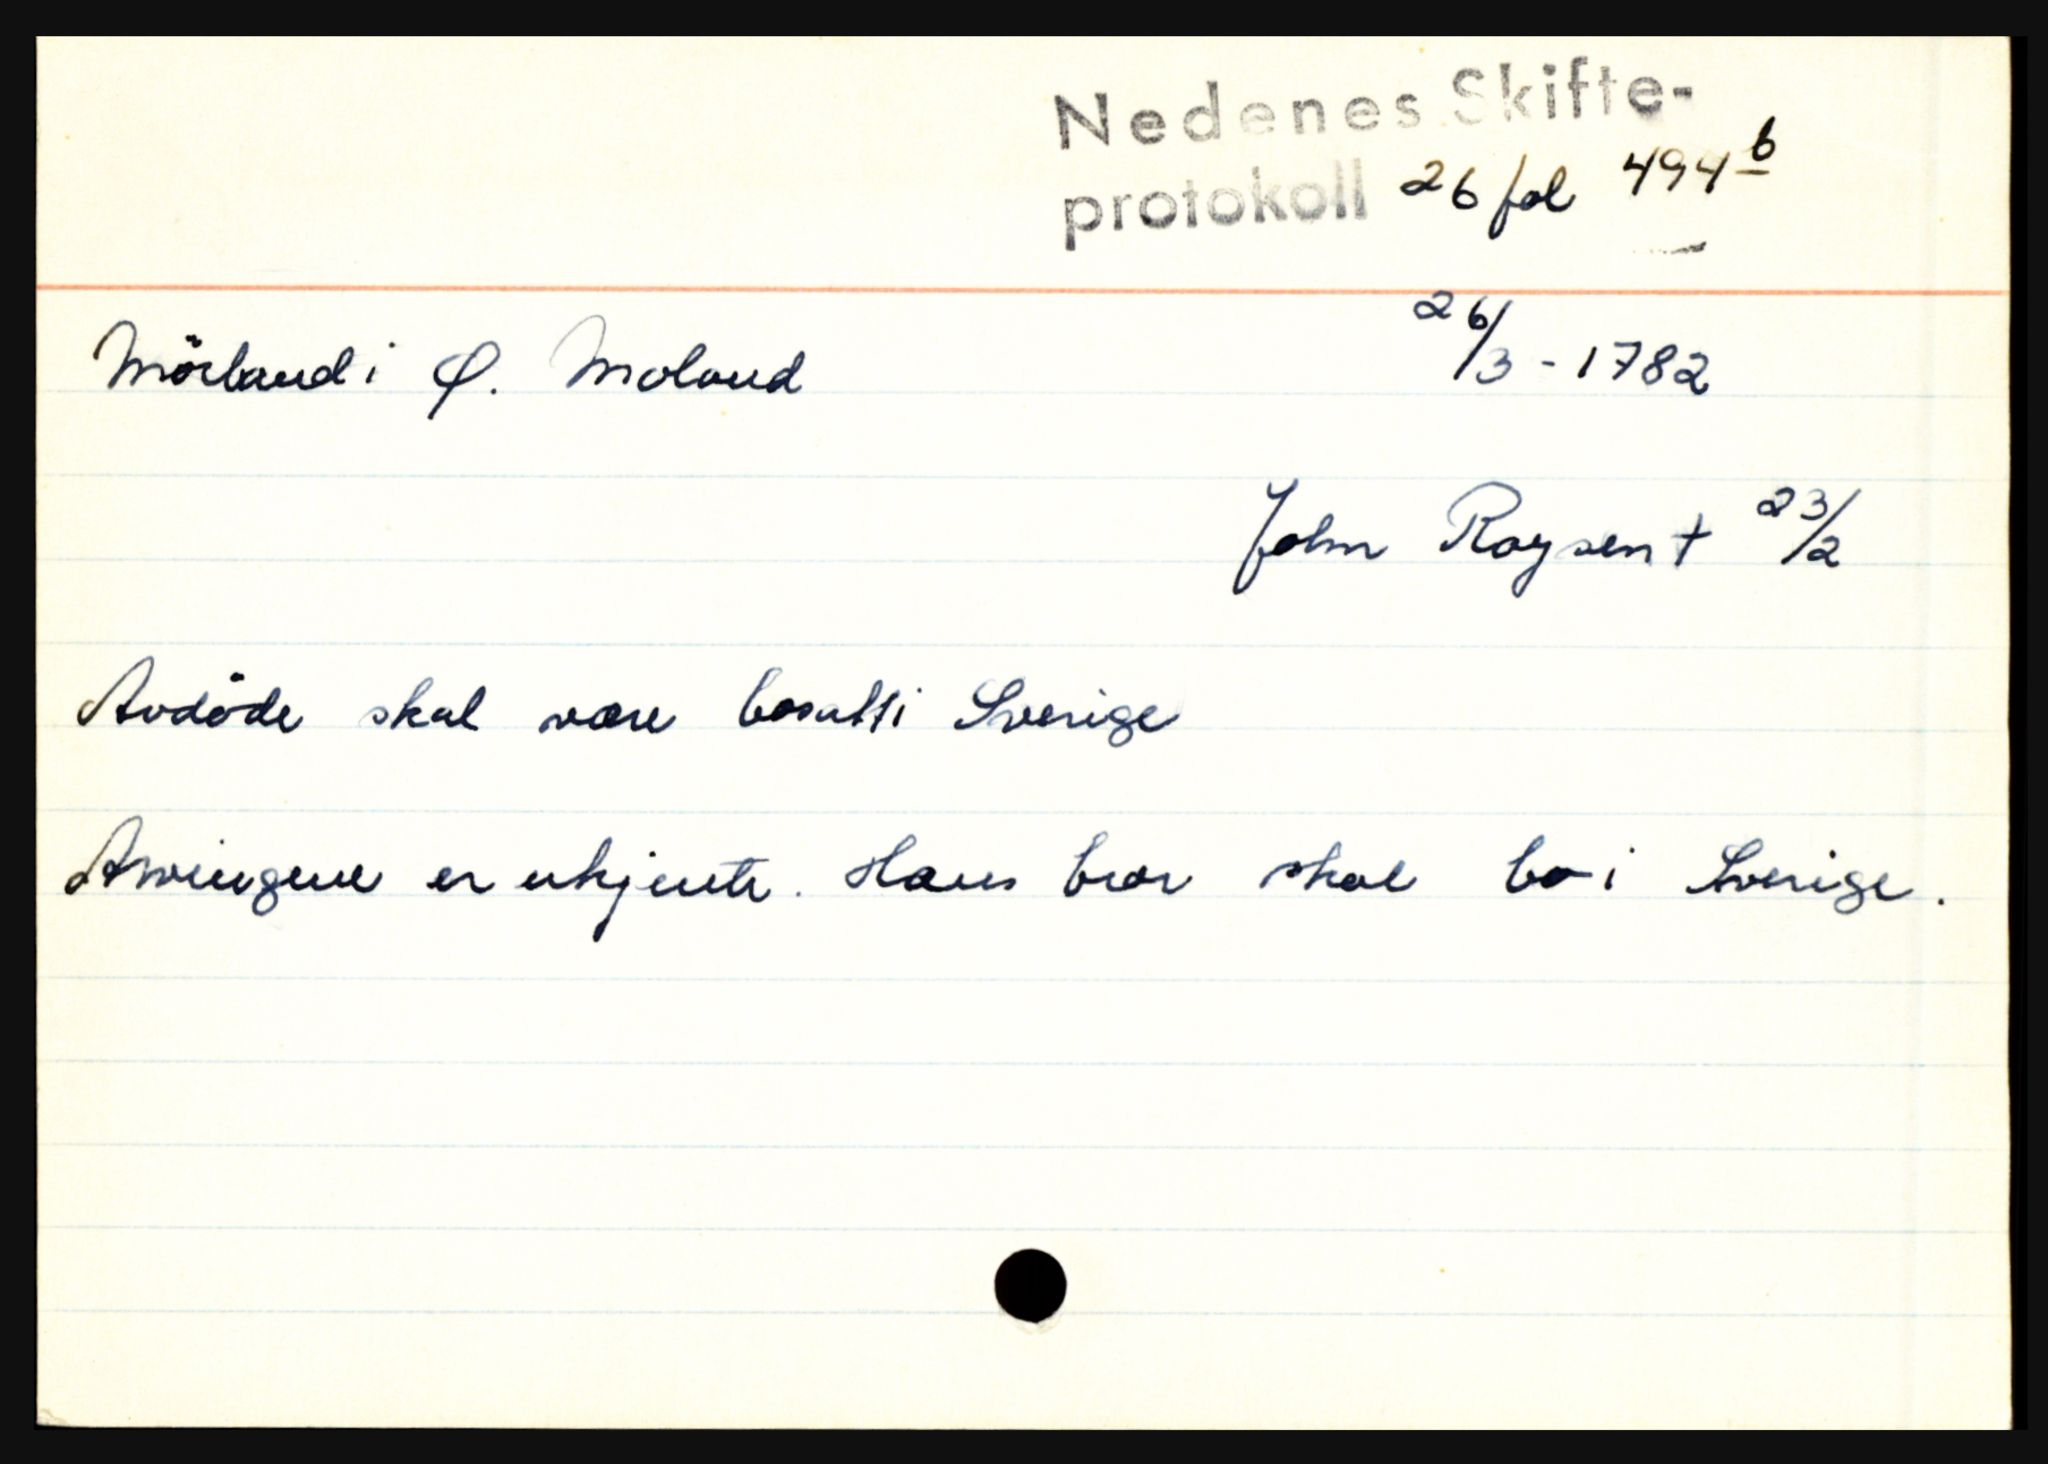 Nedenes Skifte-
protokoll 26 fol 494 b
Mörland i Ø. Moland 26/3 - 1782
John Roysen † 23/2
Avdöde skal være bosatt i Sverige
Arvingene er ukjente. Hans bror skal bo i Sverige.